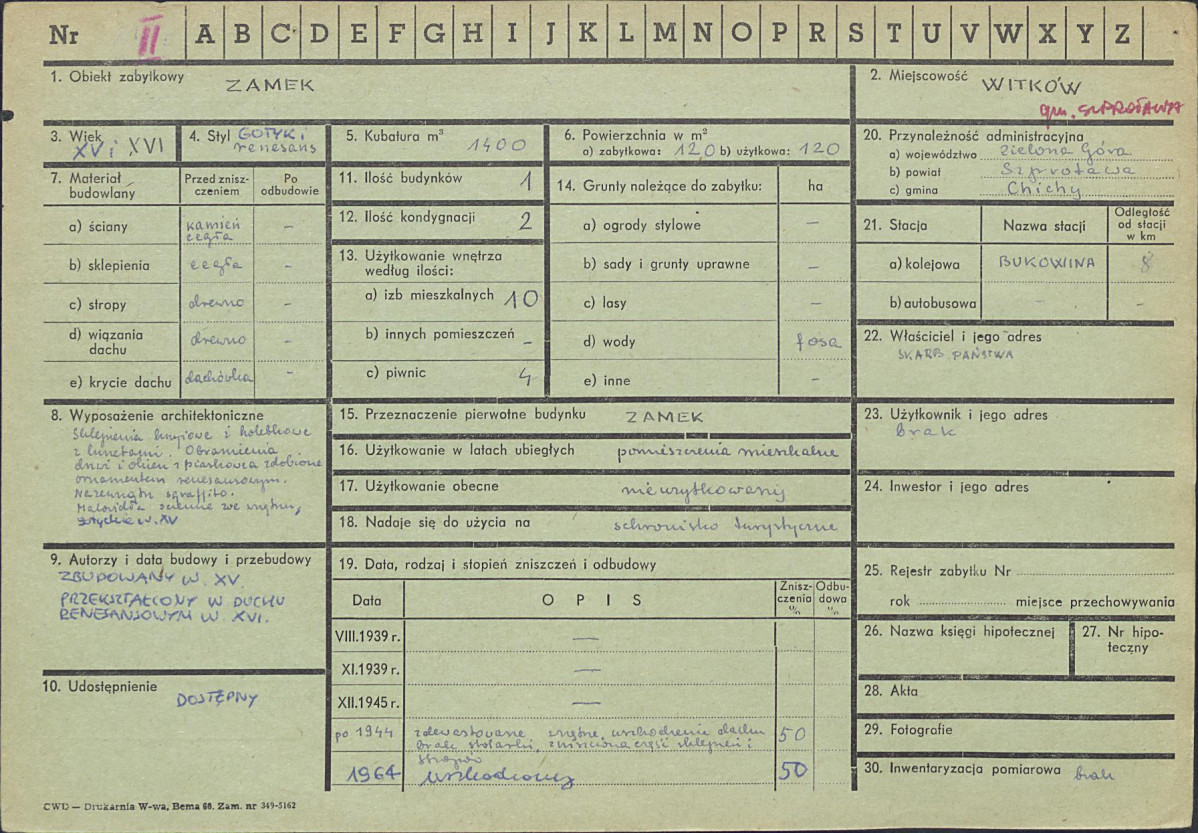 Nr II A B C D E F G H I J K L M N O P R S T U V W X Y Z
1. Obiekt zabytkowy ZAMEK
2. Miejscowość WITKÓW
gm. SZPROTAWA
3. Wiek XV i XVI
4. Styl GOTYK i renesans
5. Kubatura m³ 1400
6. Powierzchnia w m²
a) zabytkowa: 120 b) użytkowa: 120
7. Materiał budowlany
Przed zniszczeniem
Po odbudowie
a) ściany kamień cegła –
b) sklepienia cegła –
c) stropy drewno –
d) wiązania dachu drewno –
e) krycie dachu dachówka –
8. Wyposażenie architektoniczne
Sklepienia krzyżowe i kolebkowe
z lunetami. Obramienia
drzwi i okien z piaskowca zdobione
ornamentem renesansowym.
Nazewnątrz sgraffito.
Malowidła ścienne we wnętrzu,
gotyckie w. XV
9. Autorzy i data budowy i przebudowy
ZBUDOWANY W. XV.
PRZEKSZTAŁCONY W DUCHU
RENESANSOWYM W. XVI.
10. Udostępnienie
DOSTĘPNY
11. Ilość budynków 1
12. Ilość kondygnacji 2
13. Użytkowanie wnętrza
według ilości:
a) izb mieszkalnych 10
b) innych pomieszczeń –
c) piwnic 4
14. Grunty należące do zabytku: ha
a) ogrody stylowe –
b) sady i grunty uprawne –
c) lasy –
d) wody fosa
e) inne –
15. Przeznaczenie pierwotne budynku ZAMEK
16. Użytkowanie w latach ubiegłych pomieszczenia mieszkalne
17. Użytkowanie obecne nieużytkowany
18. Nadaje się do użycia na schronisko turystyczne
19. Data, rodzaj i stopień zniszczeń i odbudowy
Data OPIS Zniszczenia % Odbudowa %
VIII.1939 r. —
XI.1939 r. —
XII.1945 r. —
po 1944 zdewastowane wnętrze, uszkodzenie dachu 50
brak stolarki, zniszczona część sklepień i
stropów
1964 uszkodzony 50
20. Przynależność administracyjna
a) województwo Zielona Góra
b) powiat Szprotawa
c) gmina Chichy
21. Stacja Nazwa stacji Odległość od stacji w km
a) kolejowa BUKOWINA 8
b) autobusowa - -
22. Właściciel i jego adres
SKARB PAŃSTWA
23. Użytkownik i jego adres
brak
24. Inwestor i jego adres
25. Rejestr zabytku Nr
rok miejsce przechowywania
26. Nazwa księgi hipotecznej
27. Nr hipoteczny
28. Akta
29. Fotografie
30. Inwentaryzacja pomiarowa brak
CWD — Drukarnia W-wa, Bema 60. Zam. nr 349-5162